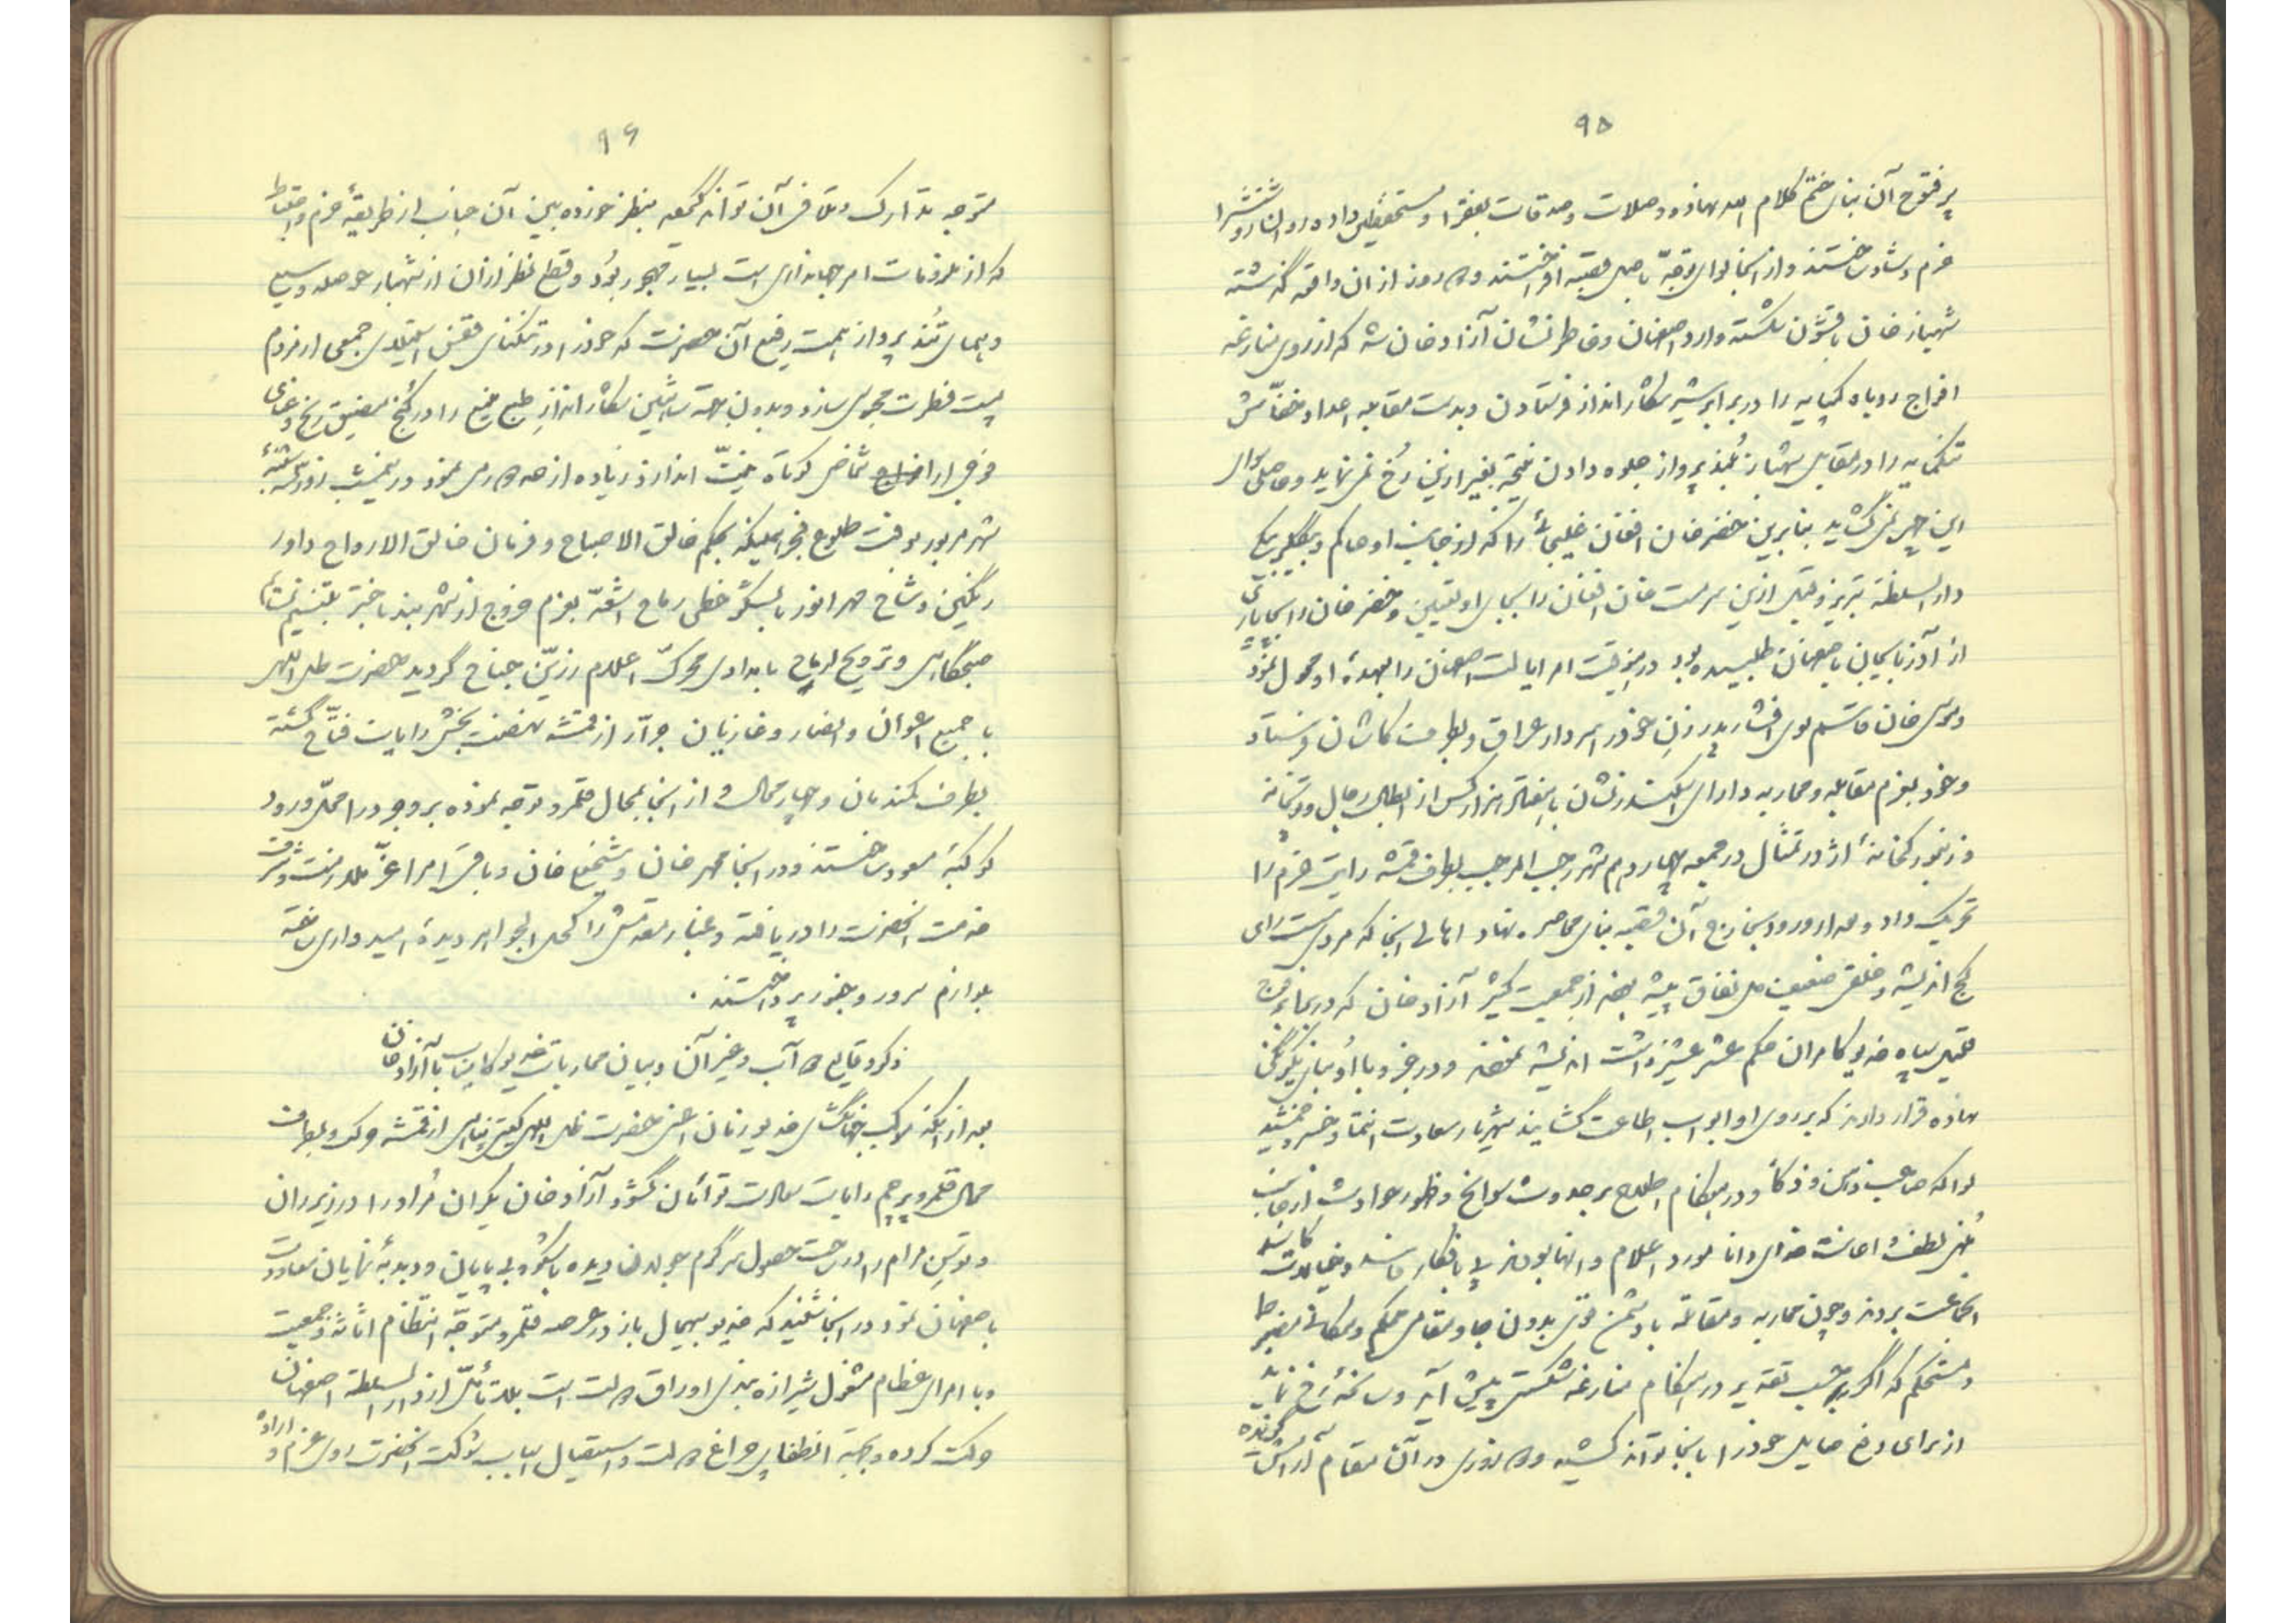 ۹۵
پر فتوح آن بنای ختم کلام الله نهاده و صلات و صدقات بفقرا و مستحقین داده روان او را
خرم و شاد ساختند و از اینجا لوای توجه باصل قصبه افراختند و روز از ان واقعه گذشته
شهباز خان با قشون شکسته وارد اصفهان و خاطر نشان آزاد خان شد که از روی منازعه
افواج روباه کم پایه را در برابر شیر شکار انداز فرستادن و بدست مقابله اعدا
تنک مایه را در مقابل شهباز بلند پرواز جلوه دادن نتیجه بغیر ازین رخ نمی نماید و حاصلی سوای
این چهره نمی گشاید بنابرین خضر خان افغان غلیجائی را که از جانب او حاکم و بیگلربیگی
دار السلطنه تبریز و قبل ازین سرمست خان افغان را بجای او تعیین و خضر خان را
از آذربایجان باصفهان طلبیده بود درینوقت امر ایالت اصفهان را بعهده او محول نمود
و موسی خان قاسملوی افشار پدر زن خود را سردار عراق و بطرف کاشان فرستاد
و خود بعزم مقابله و محاربه دارای اسکندر نشان با هفتاد هزار کس از ابطال رجال و توپخانه
و زنبورکخانه اژدر تمثال در جمعه چهاردهم شهر رجب المرجب بطرف قمشه رایت عزم را
تحریک داد و بعد از ورود بخارج آن قصبه بنای محاصره نهاد اهالی انجا که مردمی سست رای
کج اندیشه و خلقی ضعیف دل نفاق پیشه بودند از جمعیت کثیر آزاد خان که در نماء فوج
قلیل سپاه خدیو کامران حکم عشر عشیر داشت اندیشه نمودند و در خفیه با او بنای یکرنگی
نهاده قرار دادند که بر روی او ابواب اطاعت گشایند شهریار سعادت انتما و خسرو خورشید
لوا که صاحب ذهن و ذکا و در هنگام اطلاع بر حدوث سوانح و ظهور حوادث از جانب
ملهم لطف و اعانت خدای دانا مورد اعلام و انها بودند پی بافکار فاسد و خیالات کاسد
انجماعت بردند و چون محاربه و مقاتله با دشمن قوی بدون جا و مقامی محکم و مکانی مضبوط
و مستحکم که اگر بر حسب تقدیر در هنگام منازعه شکستی پیش آید و سانحه رخ نماید
از برای دفع حایل خود را بانجا تواند کشید و روزی در آن مقام تواند آرامید
۹۶
متوجه تدارک و تلافی آن تواند گردید بنظر خورده بین آن جناب از طریقه حزم و احتیاط
که از ملزومات امر جهانداری است بسیار مهجور بود و قطع نظر از ان از شهریار حوصله وسیع
و همای تند پرواز همت رفیع آن حضرت که خود را در تنگنای قفس استیلای جمعی از مردم
پست فطرت محبوس سازد و بدون جهت شاهین شکار انداز طبع منیع را در کنج مضیق رنج و عنای
فوجی از افواج شماخص کوتاه همت اندازد زیاده از حد می نمود در همین شب روز سه شنبه
شهر مزبور بوقت طلوع فجر هنگامیکه بحکم فالق الاصباح و فرمان خالق الارواح داور
رنگین وشاح مهر انور با لشکر خطی رماح اشعه بعزم خروج از شهر بند باختر
صبحگاهی و ترویح ارواح بامدادی محرک اعلام رزین جناح گردید حضرت ظل اللهی
با جمیع اعوان و انصار و غازیان جرار از قمشه نهضت بخش رایات فتاح گشته
بطرف کندمان و چهار محال و از انجا بمحال قلمرو توجه نموده بروجرد را محل ورود
کوکبه مسعود ساختند و در انجا محمد خان و شیخعلی خان و باقی امرا عز ملازمت و شرف
خدمت انحضرت را دریافته و غبار مقدمش را کحل الجواهر دیده امیدواری ساخته
بلوازم سرور و حضور پرداختند .
ذکر وقایع آب و غیر آن و بیان محاربات خدیو کامیاب با آزاد خان
بعد از انکه موکب جهانگشای خدیو زمان اعنی حضرت ظل اللهی گیتی پناهی از قمشه حرکت و بطرف
محال قلمرو پرچم رایات سعادت توأمان گشود آزاد خان یکران مراد را در زیر ران
و توسن مرام را در تحت حصول سرگرم جولان دیده با شکوه بی پایان و دبدبه نمایان معاودت
باصفهان نمود در انجا شنید که خدیو بیهمال باز در عرصه قلمرو متوجه انتظام اثاثه و جمعیت
و با امرای عظام مشغول شیرازه بندی اوراق است بلا تأمل از دار السلطنه اصفهان
حرکت کرده و بجهة انطفای چراغ و استیصال اسباب شوکت انحضرت روی عزم و اراده